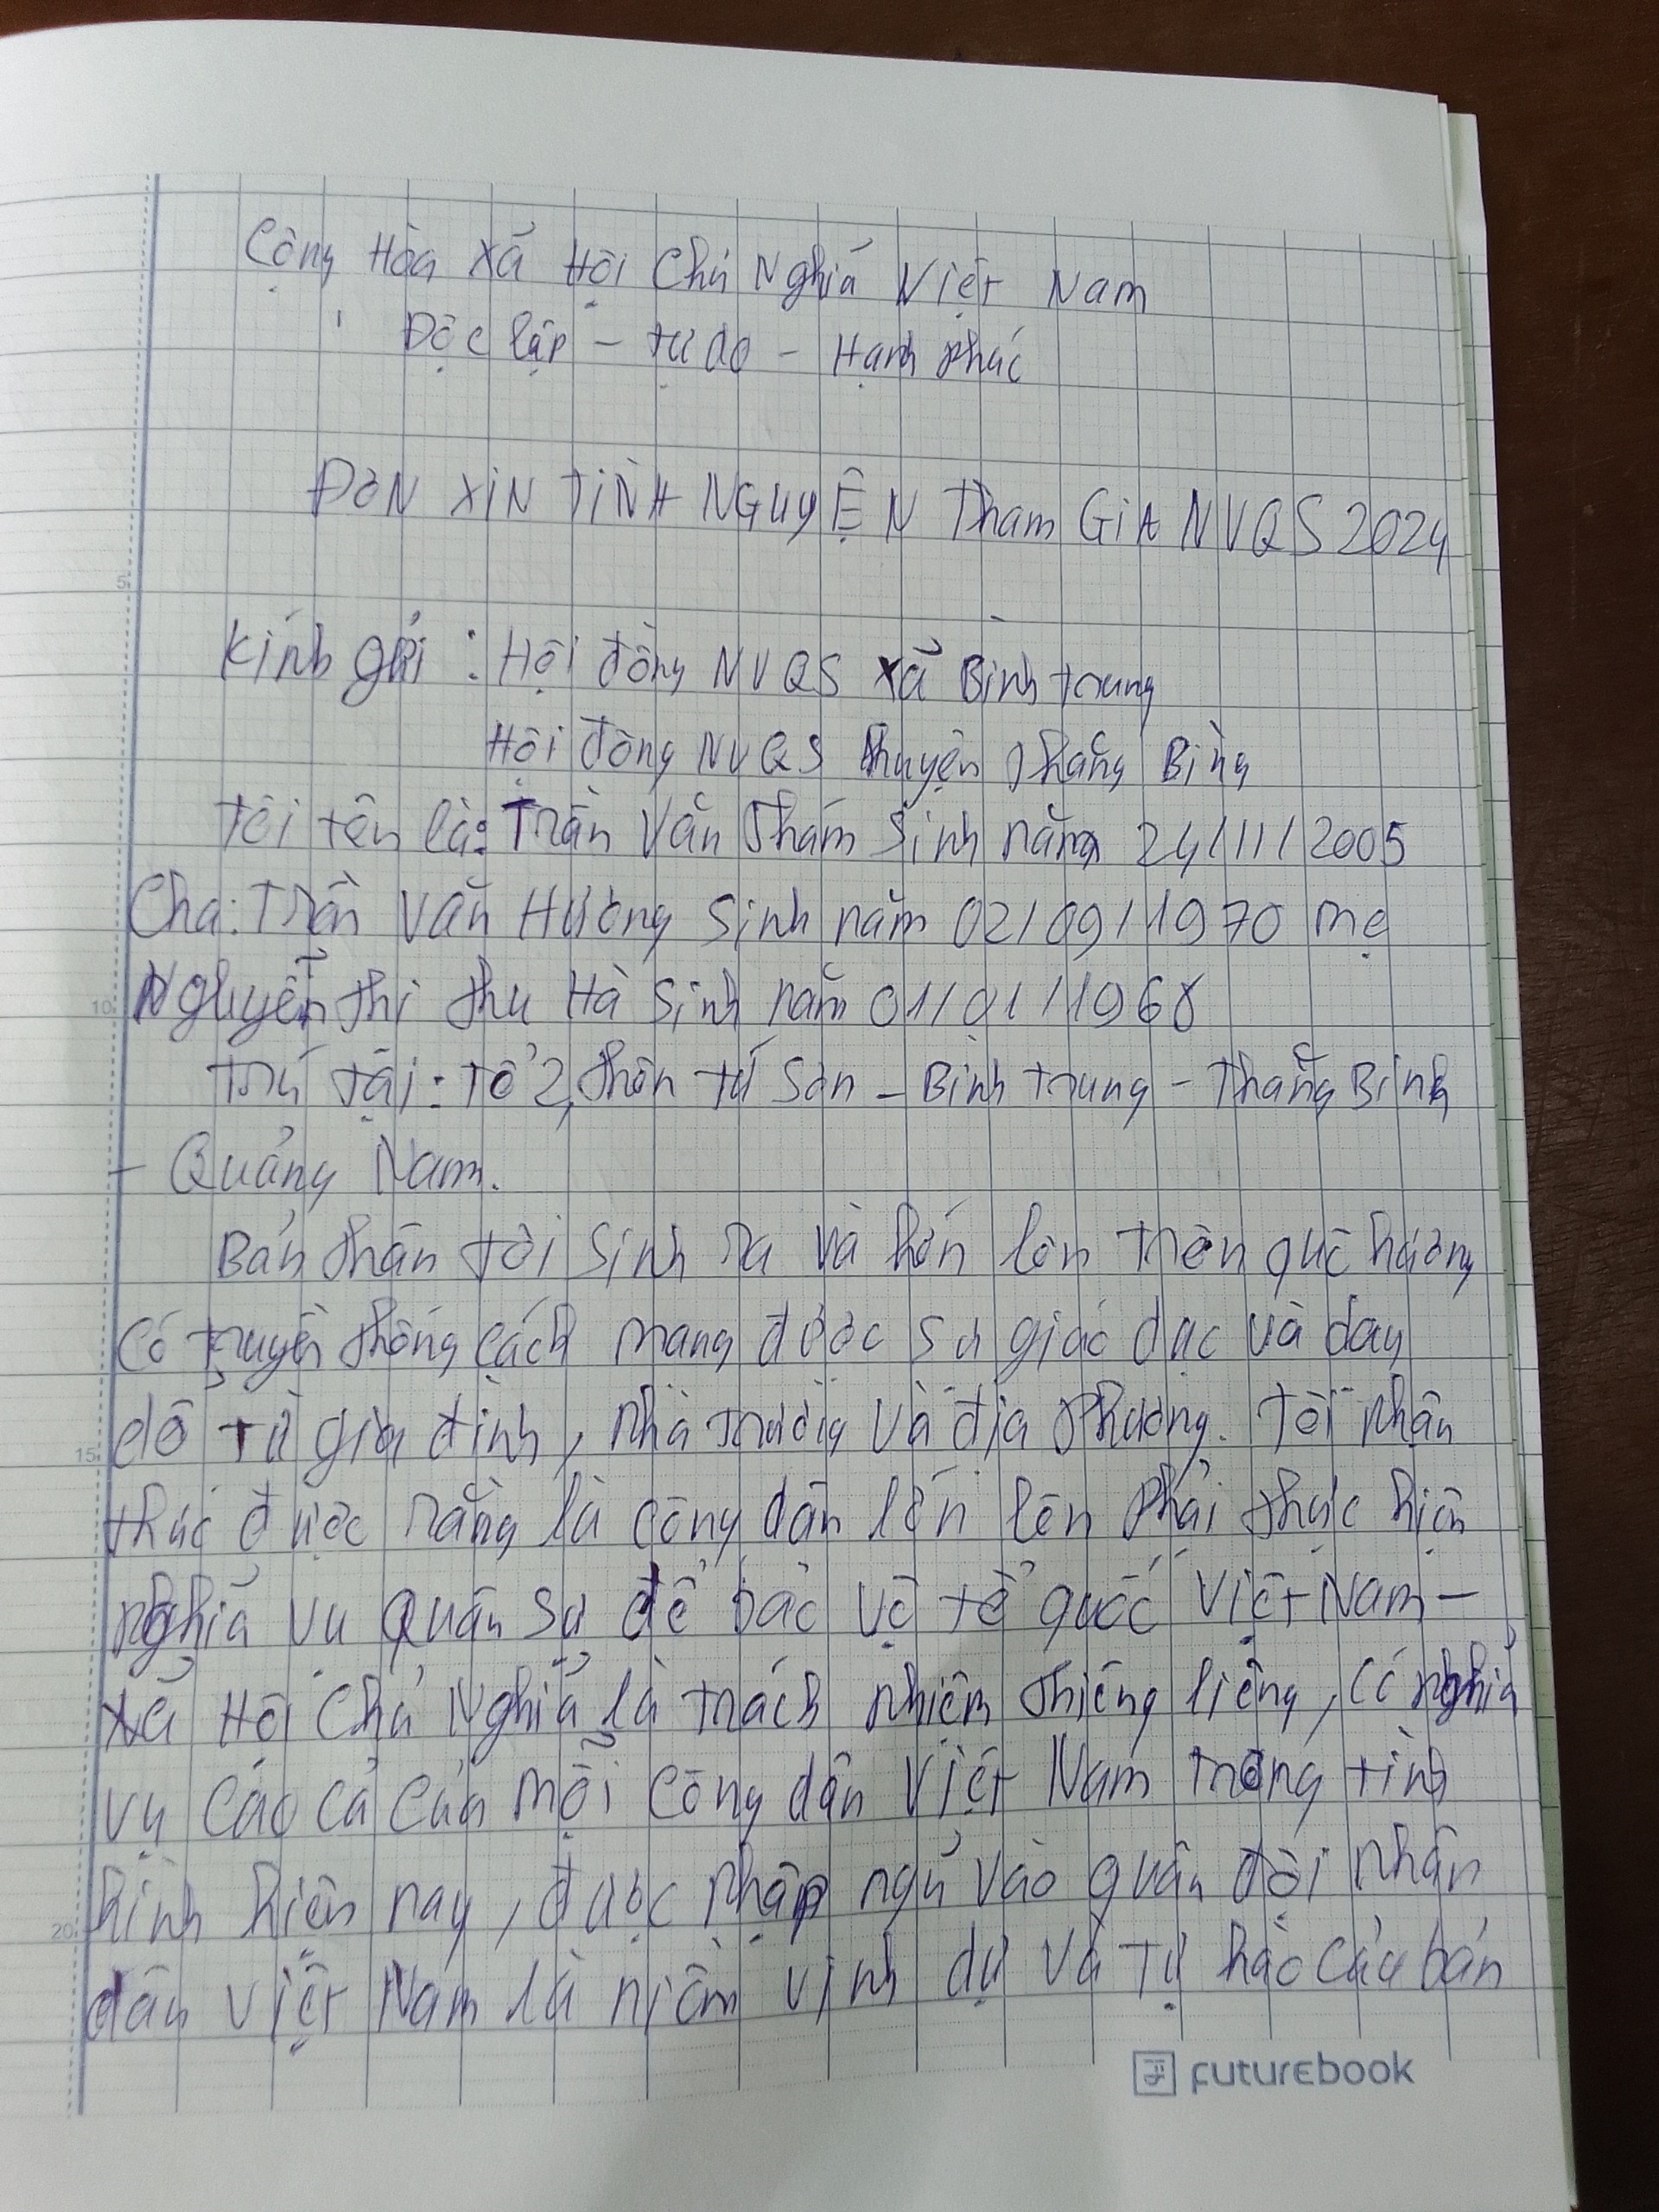 Cộng Hòa Xã Hội Chủ Nghĩa Việt Nam
Độc lập - tự do - Hạnh phúc
ĐƠN XIN TÌNH NGUYỆN Tham GIA NVQS 2024
Kính gửi : Hội đồng NVQS xã Bình trung
Hội đồng NVQS huyện Thăng Bình
Tôi tên là: Trần Văn Thám Sinh năm 24/11/2005
Cha: Trần Văn Hương Sinh năm 02/09/1970 mẹ
Nguyễn thi thu Hà Sinh năm 01/01/1968
Trú tại : Tổ 2, thôn tú Sơn - Bình trung - Thăng Bình
- Quảng Nam.
Bản thân tôi Sinh ra và lớn lên trên quê hương
Có truyền thống Cách mạng được sự giác dục và dạy
dỗ từ gia đình, nhà trường và địa phương. Tôi nhận
thức được rằng là công dân lớn lên phải thực hiện
nghĩa vụ quân sự để bảo vệ tổ quốc Việt Nam -
Xã Hội Chủ Nghĩa là trách nhiệm thiêng liêng, có nghĩa
vụ cao cả của mỗi công dân Việt Nam trong tình
hình hiện nay, được nhập ngũ vào quân đội nhân
dân Việt Nam là niềm vinh dự và tự hào của bản
5
10
15
20
FUTUREBOOK